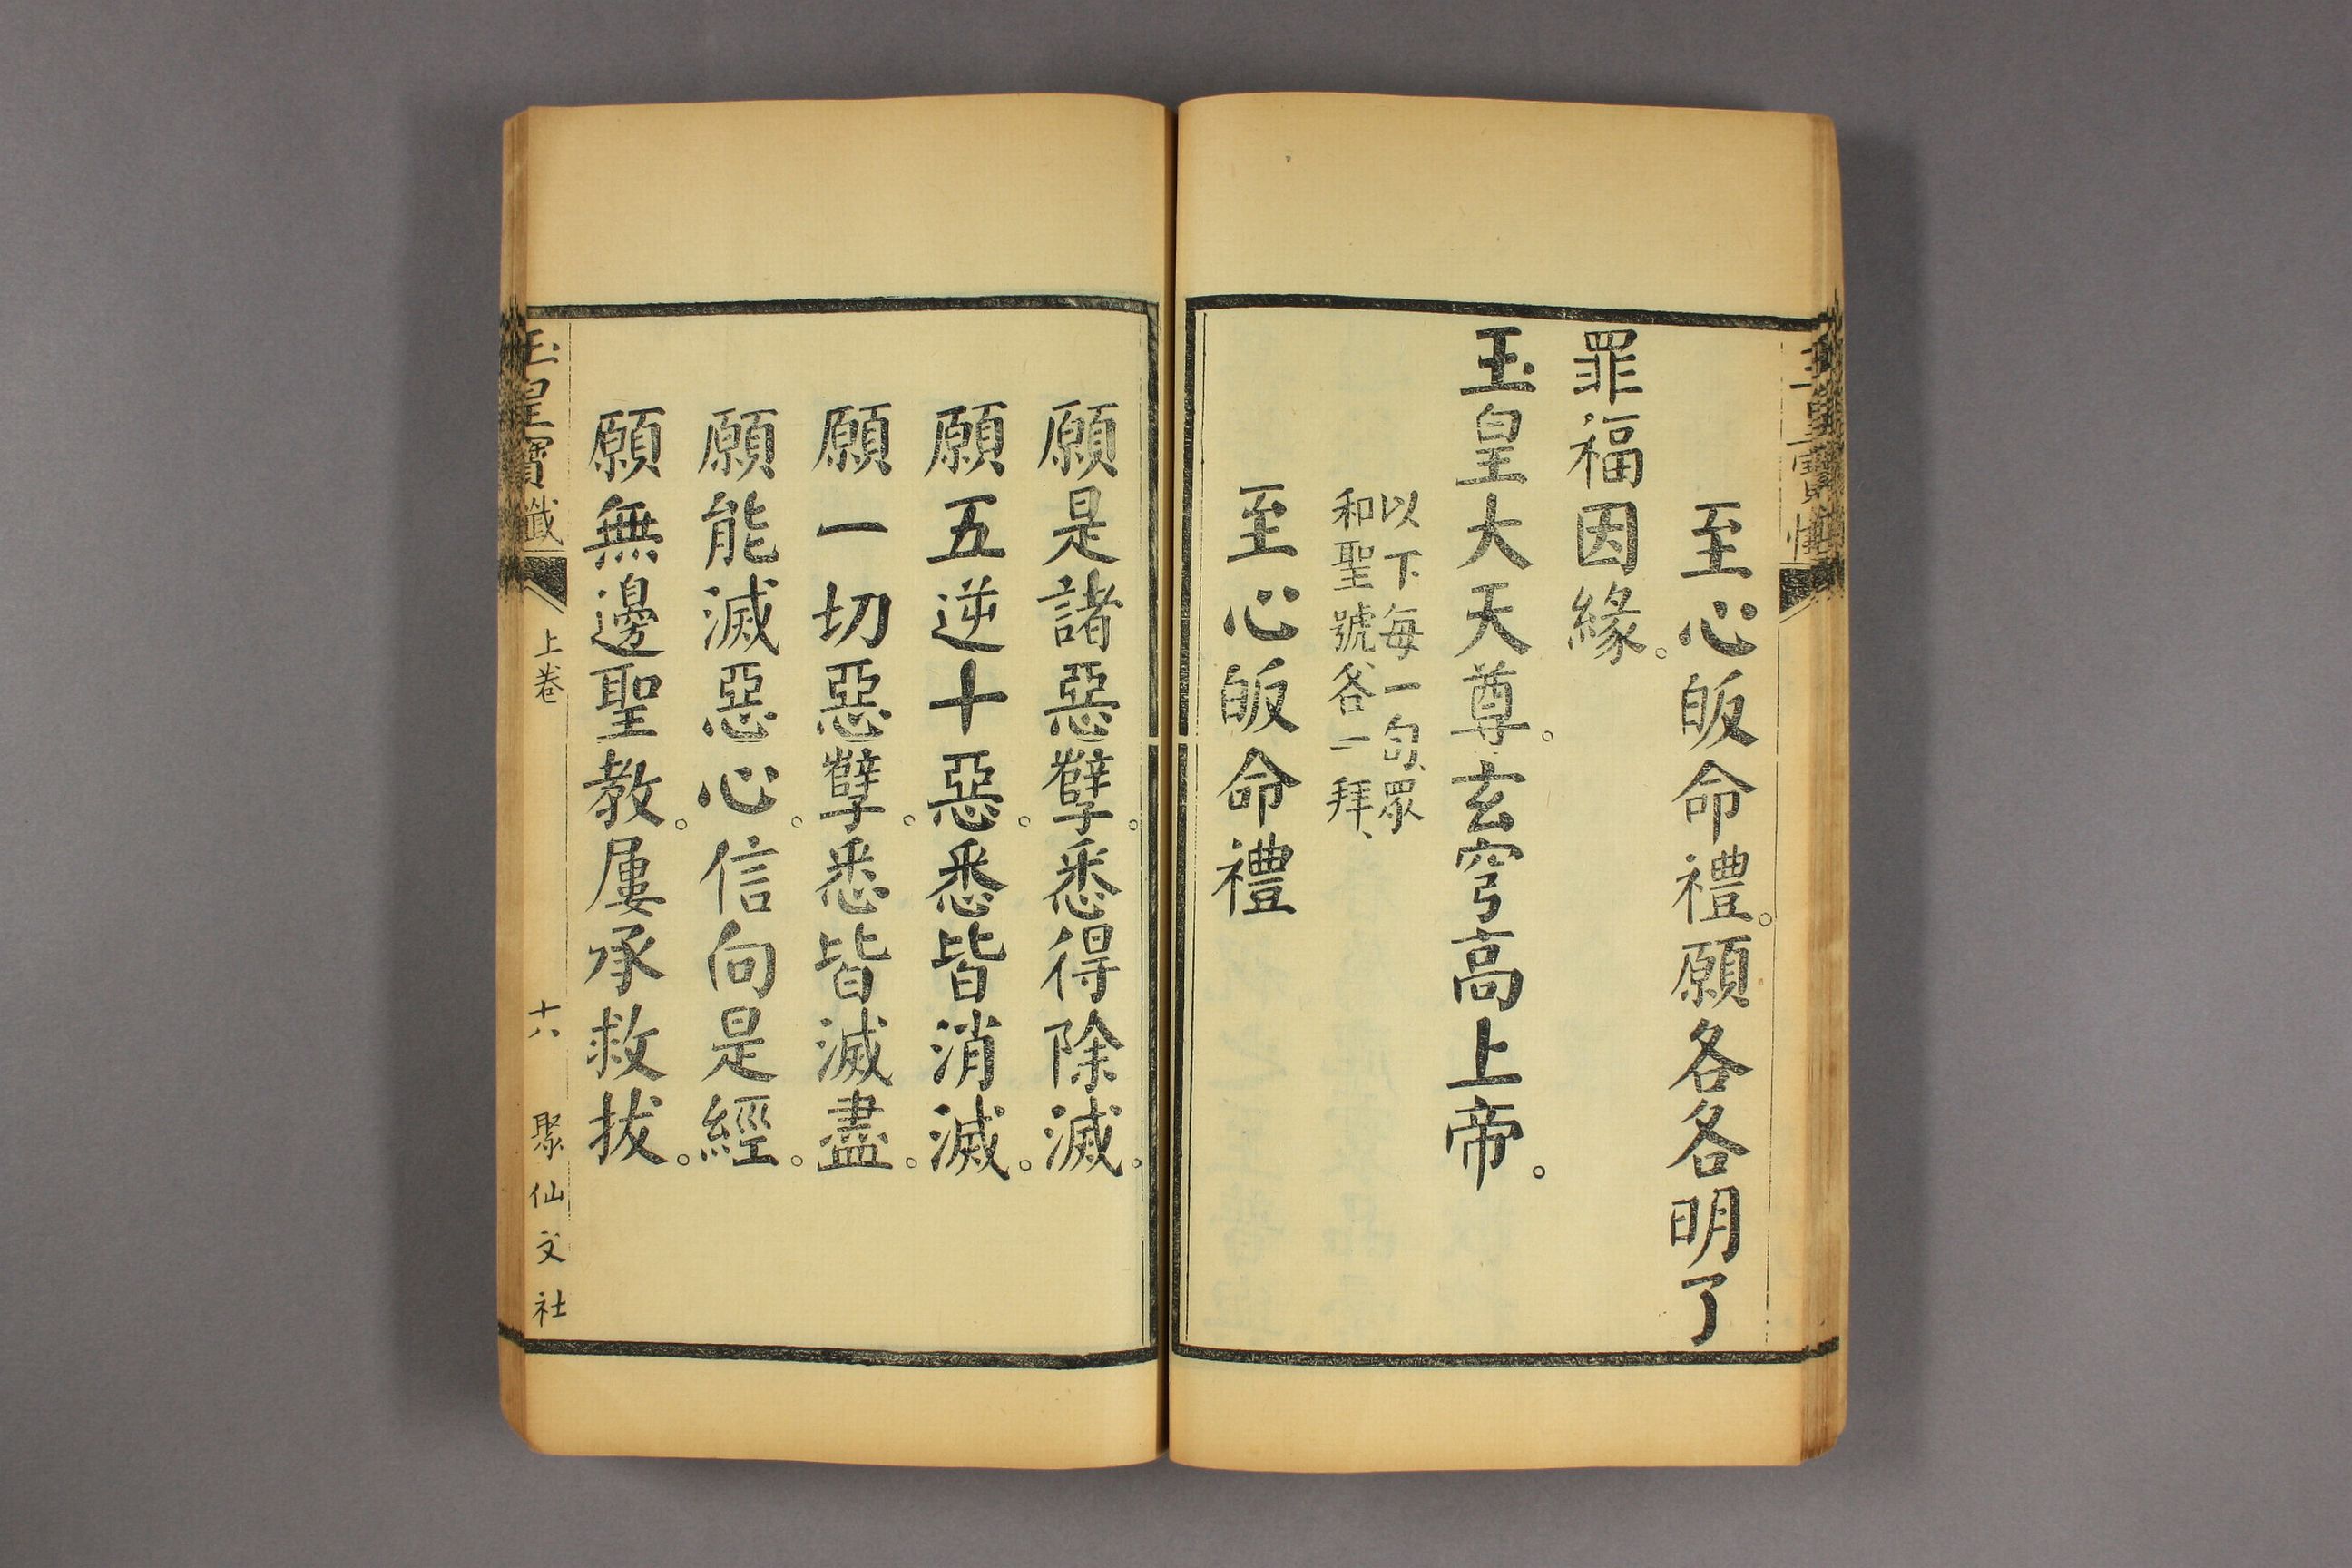 至心皈命禮。願各各明了
罪福因緣。
玉皇大天尊。玄穹高上帝。
以下每一句、眾
和聖號各一拜、
至心皈命禮
願是諸惡孽。悉得除滅。
願五逆十惡。悉皆消滅。
願一切惡孽。悉皆滅盡。
願能滅惡心。信向是經。
願無邊聖教。屢承救拔。
玉皇寶懺
上卷
十八
聚仙文社